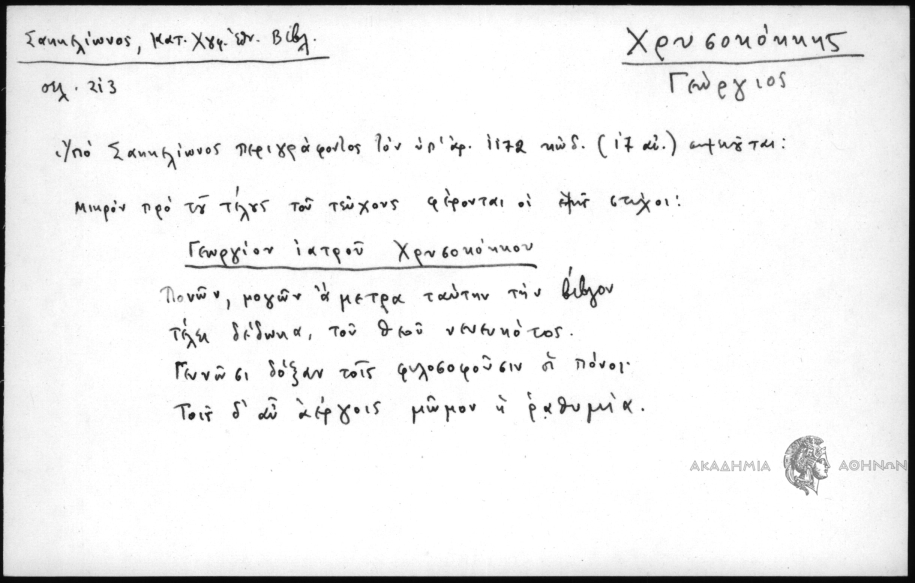 Σακκελίωνος, Κατ. Χγφ. Ἐθν. Βιβλ.
Χρυσοκόκκης
Γεώργιος
σελ. 213
Ὑπό Σακκελίωνος περιγράφοντος τόν ὑπ' ἀρ. 1172 κώδ. (17 αἰ.) σημειοῦται:
Μικρόν πρό τοῦ τέλους τοῦ τεύχους φέρονται οἱ ἑξῆς στίχοι:
Γεωργίου ἰατροῦ Χρυσοκόκκου
Πονῶν, μογῶν ἄμετρα ταύτην τήν βίβλον
τέλει δέδωκα, τοῦ θεοῦ νενευκότος.
Γεννῶσι δόξαν τοῖς φιλοσοφοῦσιν οἱ πόνοι·
Τοῖς δ' αὖ ἀέργοις μῶμον ἡ ῥαθυμία.
ΑΚΑΔΗΜΙΑ ΑΘΗΝΩΝ